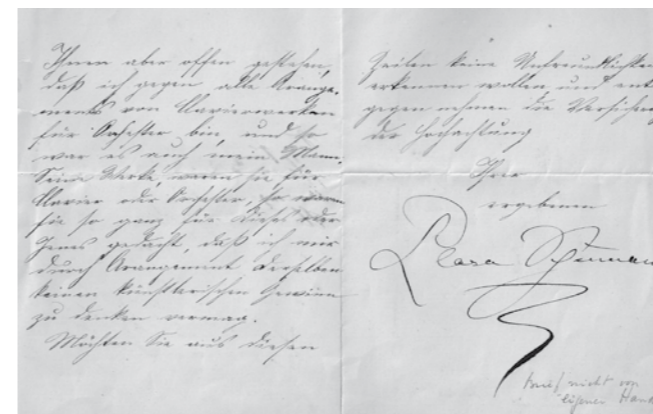 Ihnen aber offen gestehen,
daß ich gegen alle Arange-
ments von Clavierwerken
für Orchester bin, und so
war es auch mein Mann.
Seine Werke, waren sie für
Clavier oder Orchester, so waren
sie so ganz für dieses oder
jenes gedacht, daß ich mir
durch Arangement derselben
keinen künstlerischen Gewinn
zu denken vermag.
Möchten Sie aus diesen
Zeilen keine Unfreundlichkei
erkennen wollen, und ent
gegen nehmen die Versicher
der Hochachtung
Ihrer
ergebenen
Clara Schumann
Brief nicht von
eigener Hand